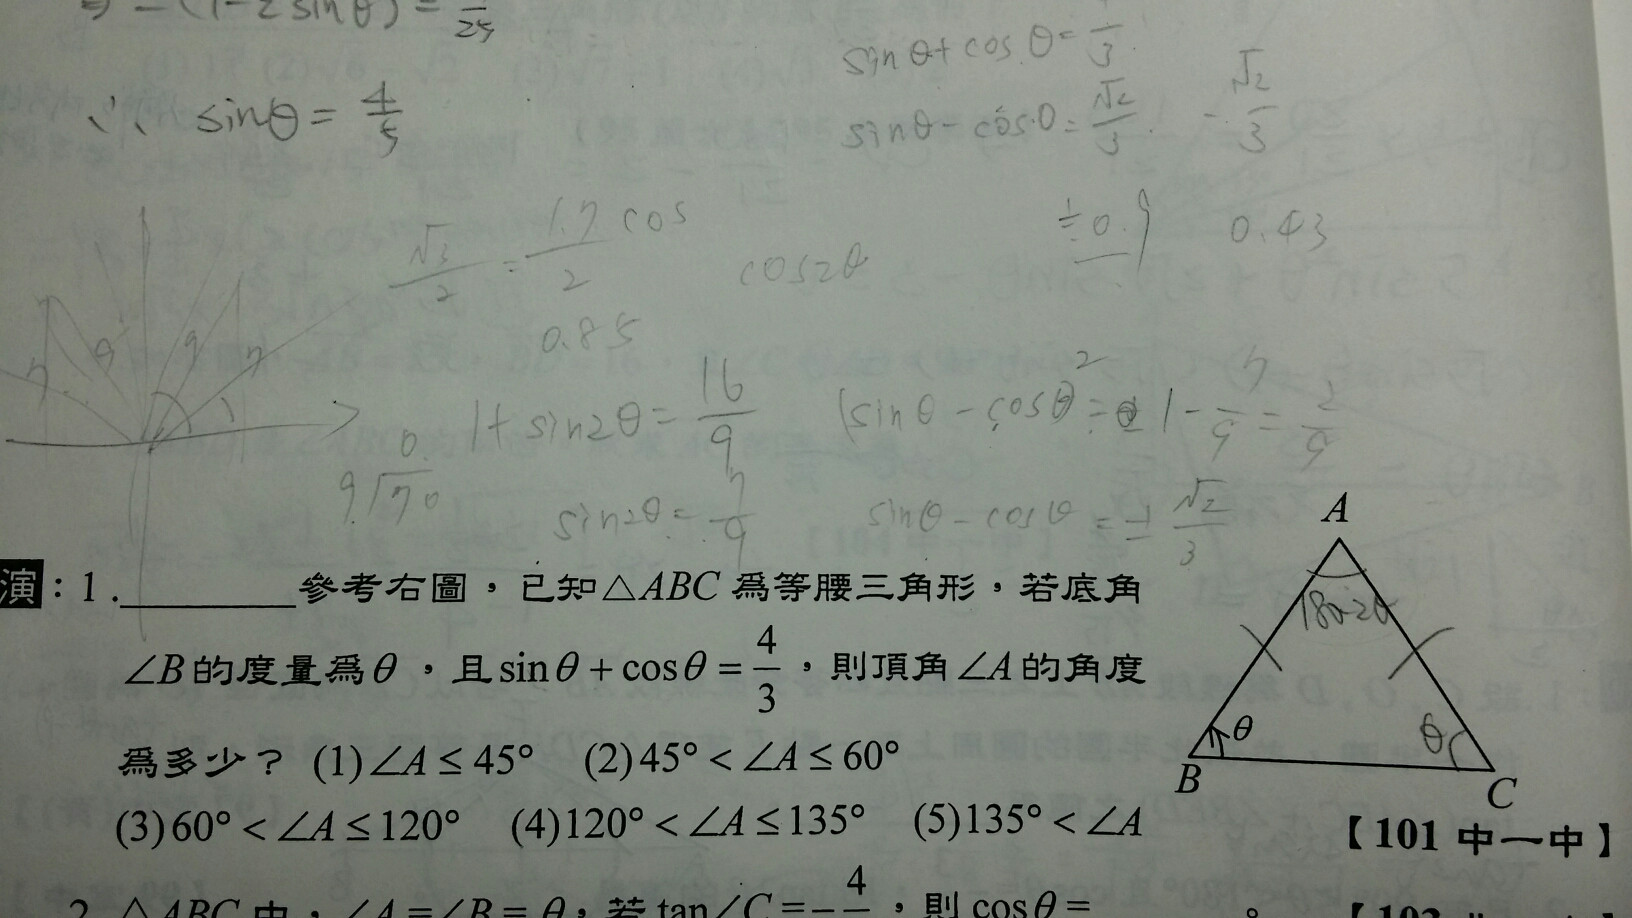 ⇒ -(1-2sinθ) = /25
∴ sinθ = 4/5
sinθ + cosθ = /3
sinθ - cosθ = √2/3 . -√2/3
√3/2 = 1.7/2 cos
0.85
cos2θ
÷0.9
0.43
1+sin2θ = 16/9
(sinθ - cosθ)² = 1 - 7/9 = 2/9
sin2θ = 7/9
sinθ - cosθ = ± √2/3
0.
9√70
演：1.________參考右圖，已知△ABC 為等腰三角形，若底角
∠B的度量為θ，且sinθ+cosθ=4/3，則頂角∠A的角度
為多少？ (1)∠A≤45° (2)45°<∠A≤60°
(3)60°<∠A≤120° (4)120°<∠A≤135° (5)135°<∠A
A
180-2θ
θ
θ
B
C
【101 中一中】
2. △ABC中，∠A=∠B=θ，若tan∠C=-4/，則cosθ=